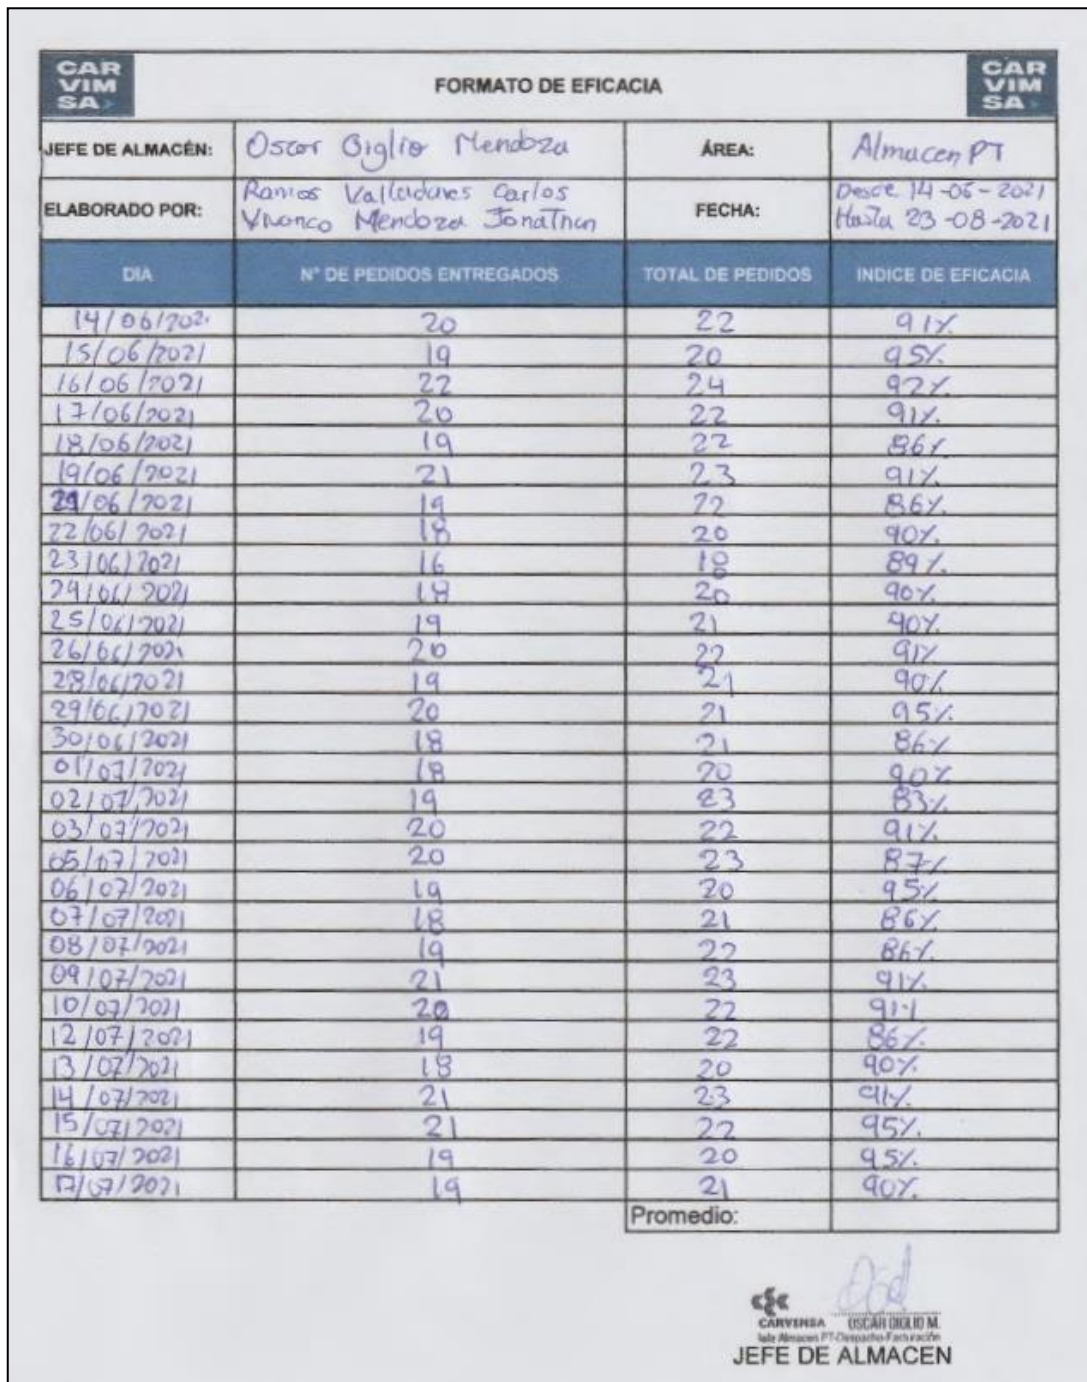 CAR
VIM
SA
FORMATO DE EFICACIA
CAR
VIM
SA
JEFE DE ALMACÉN: Oscar Giglio Mendoza ÁREA: Almacen PT
ELABORADO POR: Ramos Valladares Carlos
Vivanco Mendoza Jonathan
FECHA: Desde 14-06-2021
Hasta 23-08-2021
DIA N° DE PEDIDOS ENTREGADOS TOTAL DE PEDIDOS INDICE DE EFICACIA
14/06/202 20 22 91%
15/06/2021 19 20 95%
16/06/2021 22 24 92%
17/06/2021 20 22 91%
18/06/2021 19 22 86%
19/06/2021 21 23 91%
21/06/2021 19 22 86%
22/06/2021 18 20 90%
23/06/2021 16 18 89%
24/06/2021 18 20 90%
25/06/2021 19 21 90%
26/06/2021 20 22 91%
28/06/2021 19 21 90%
29/06/2021 20 21 95%
30/06/2021 18 21 86%
01/07/2021 18 20 90%
02/07/2021 19 23 83%
03/07/2021 20 22 91%
05/07/2021 20 23 87%
06/07/2021 19 20 95%
07/07/2021 18 21 86%
08/07/2021 19 22 86%
09/07/2021 21 23 91%
10/07/2021 20 22 91%
12/07/2021 19 22 86%
13/07/2021 18 20 90%
14/07/2021 21 23 91%
15/07/2021 21 22 95%
16/07/2021 19 20 95%
17/07/2021 19 21 90%
Promedio:
CARVIMSA OSCAR GIGLIO M.
Jefe Almacen PT-Despacho-Facturación
JEFE DE ALMACEN